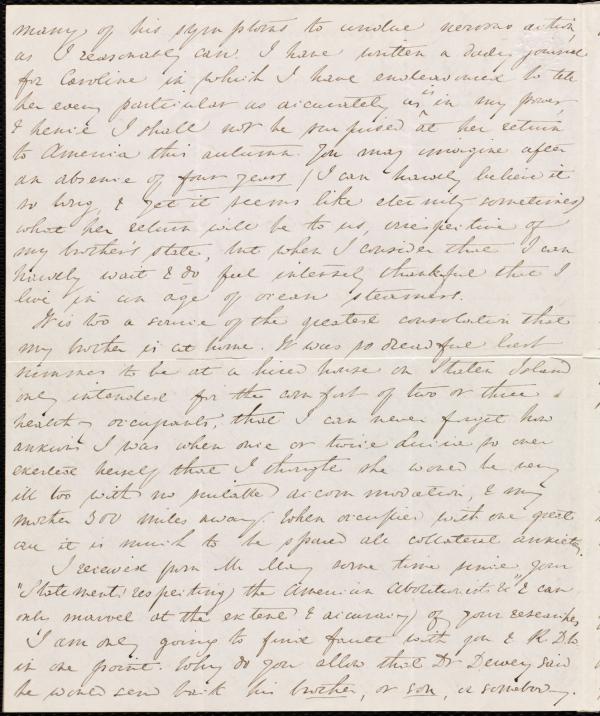 many of his symptoms to undue nervous action
as I reasonably can. I have written a daily journal
for Caroline in which I have endeavoured to tell
her every particular as accurately as is in my power,
& hence I shall not be surprised at her return
to America this autumn. You may imagine after
an absence of four years (I can hardly believe it
so long, & yet it seems like eternity sometimes)
what her return will be to us, irrespective of
my brother's state, but when I consider that I can
hardly wait & do feel intensely thankful that I
live in an age of ocean steamers.
It is too a source of the greatest consolation that
my brother is at home. It was so dreadful last
summer to be at a hired house on Staten Island
only intended for the comfort of two or three
healthy occupants, that I can never forget how
anxious I was when once or twice Louisa so over
exerted herself that I thought she would be very
ill too with no suitable accommodation, & my
mother 300 miles away. When occupied with one great
care it is much to be spared all collateral anxiety.
I received from Mr May some time since your
"Statements respecting the American Abolitionists &c" & can
only marvel at the extent & accuracy of your researches
I am only going to find fault with you & R.D.W.
in one point. Why do you allow that Dr Dewey said
he would send back his brother, or son, or somebody.